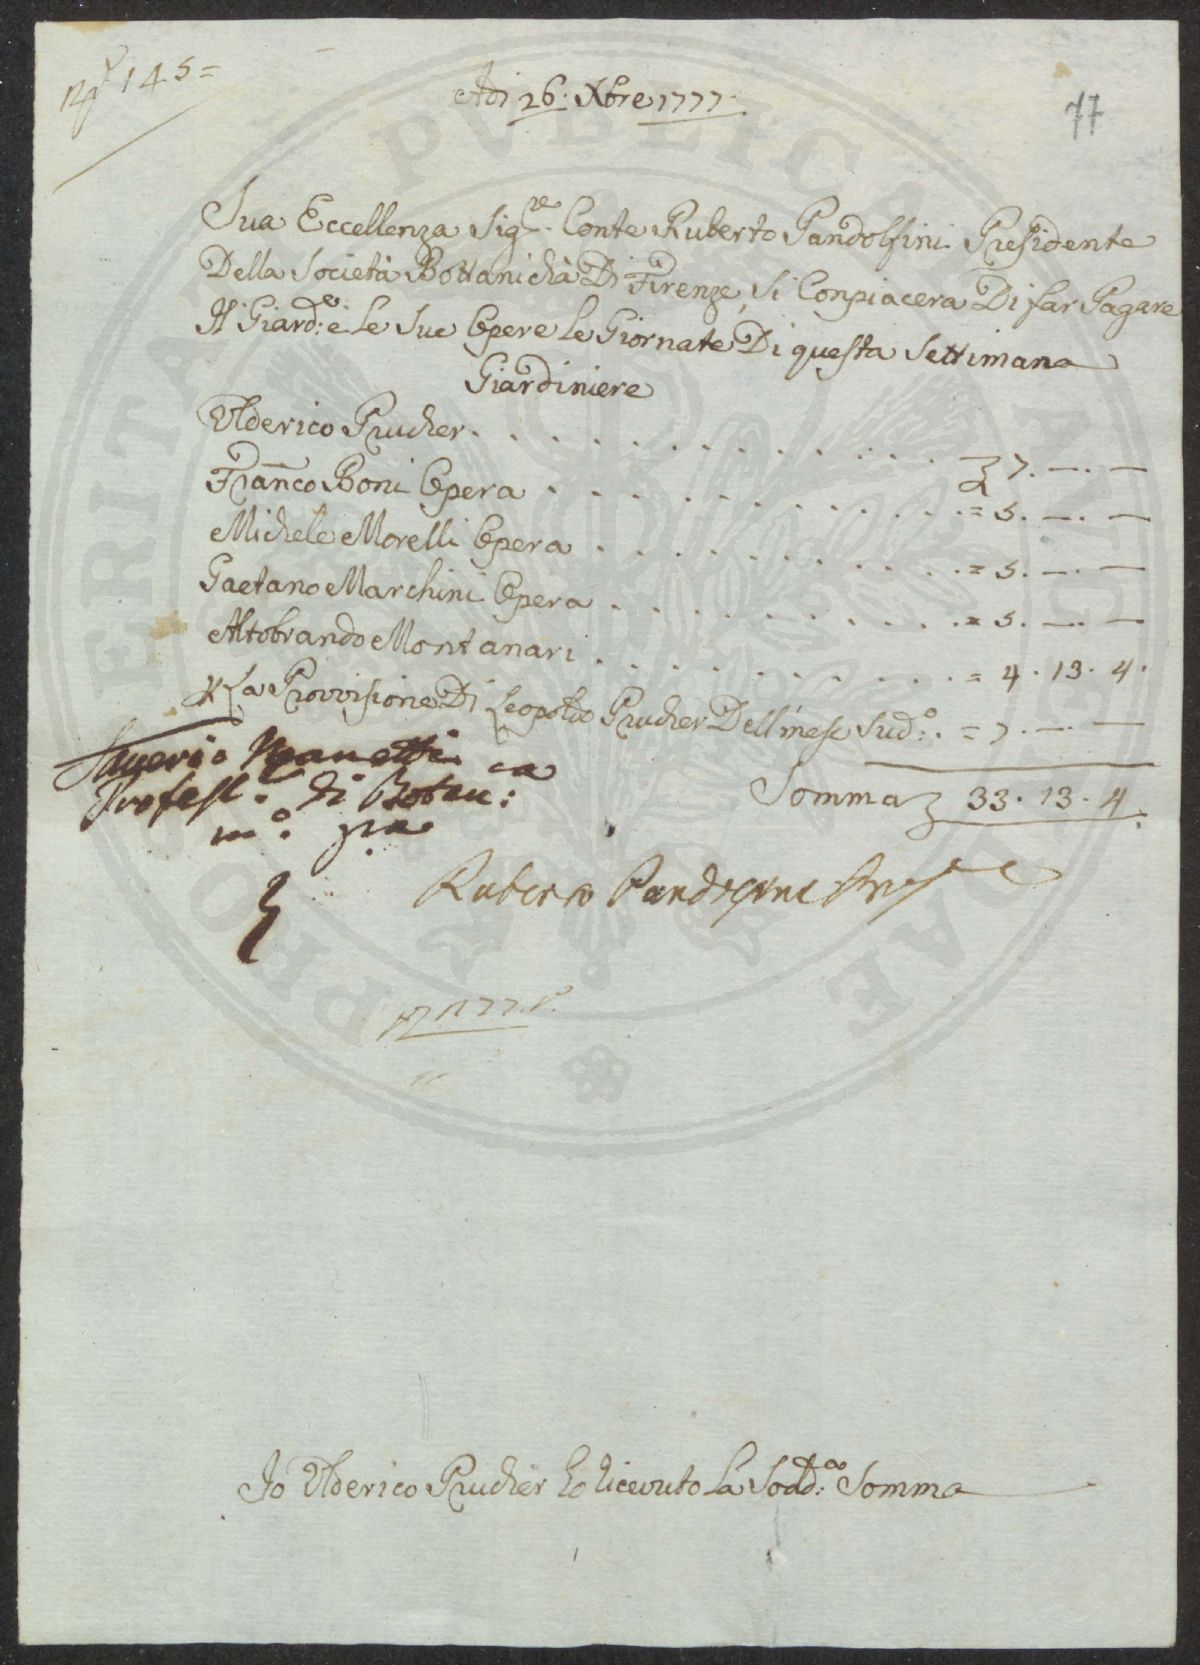 145=
Adi 26. Xbre 1777.
77
Sua Eccellenza Sig.re Conte Ruberto Pandolfini Presidente
Della Società Bottanichà Di Firenze, Si Conpiacera Di far Pagare
Il Giard:e e le Sue Opere le Giornate Di questa Settimana
Giardiniere
Ulderico Prucher . . . . . . . . . . . . 7. —. —
Franco Boni Opera . . . . . . . . . . . = 5. —. —
Michele Morelli Opera . . . . . . . . . . = 5. —. —
Gaetano Marchini Opera . . . . . . . . . = 5. —. —
Altobrando Montanari . . . . . . . . . . = 4. 13. 4.
La Provvisione Di Leopoldo Prucher Dell mese Sud:o . = 7. —. —
Saverio Manetti
Profess.e di Botan:ca
m.o pa
Somma 33. 13. 4.
Ruberto Pandolfini
Io Ulderico Prucher ho ricevuto La Sodd:a Somma
PRO VERITATE PVBLICA